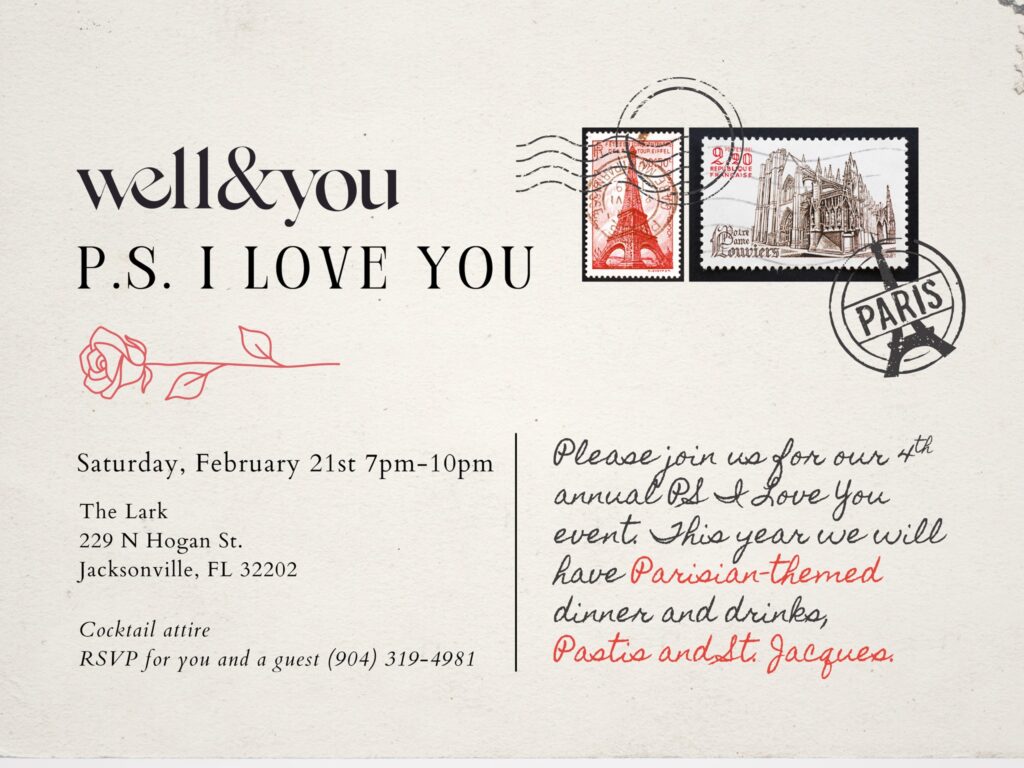 well&you
P.S. I LOVE YOU
2,20
REPUBLIQUE
FRANÇAISE
Notre
Dame
Louviers
PARIS
Saturday, February 21st 7pm-10pm
The Lark
229 N Hogan St.
Jacksonville, FL 32202
Cocktail attire
RSVP for you and a guest (904) 319-4981
Please join us for our 4th
annual PS I Love You
event. This year we will
have Parisian-themed
dinner and drinks,
Pastis and St. Jacques.